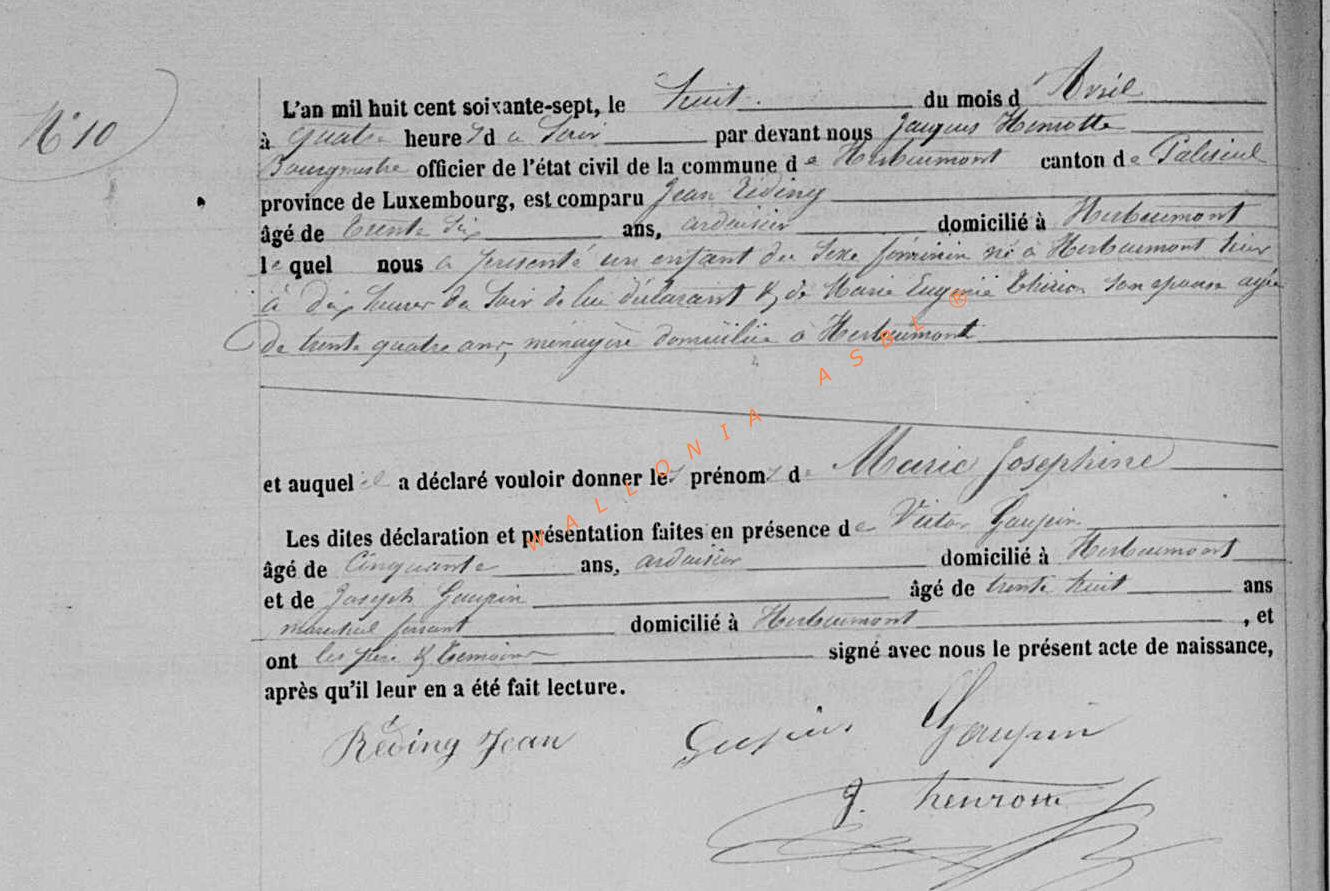 N° 10
L'an mil huit cent soixante-sept, le huit du mois d'Avril
à quatre heures du Soir par devant nous Jacques Henrotte
Bourgmestre officier de l'état civil de la commune de Herbeumont canton de Paliseul
province de Luxembourg, est comparu Jean Réding
âgé de trente six ans, ardoisier domicilié à Herbeumont
lequel nous a présenté un enfant du Sexe féminin né à Herbeumont hier
à dix heures du Soir de lui déclarant & de Marie Eugénie Thirion son épouse agée
de trente quatre ans, ménagère domiciliée à Herbeumont
et auquel il a déclaré vouloir donner les prénoms de Marie Josephine
Les dites déclaration et présentation faites en présence de Victor Gaupin
âgé de Cinquante ans, ardoisier domicilié à Herbeumont
et de Joseph Gaupin âgé de trente huit ans
maréchal ferrant domicilié à Herbeumont, et
ont les père & témoins signé avec nous le présent acte de naissance,
après qu'il leur en a été fait lecture.
Réding Jean Gaupin
J. henrotte
WALLONIA ASBL ®